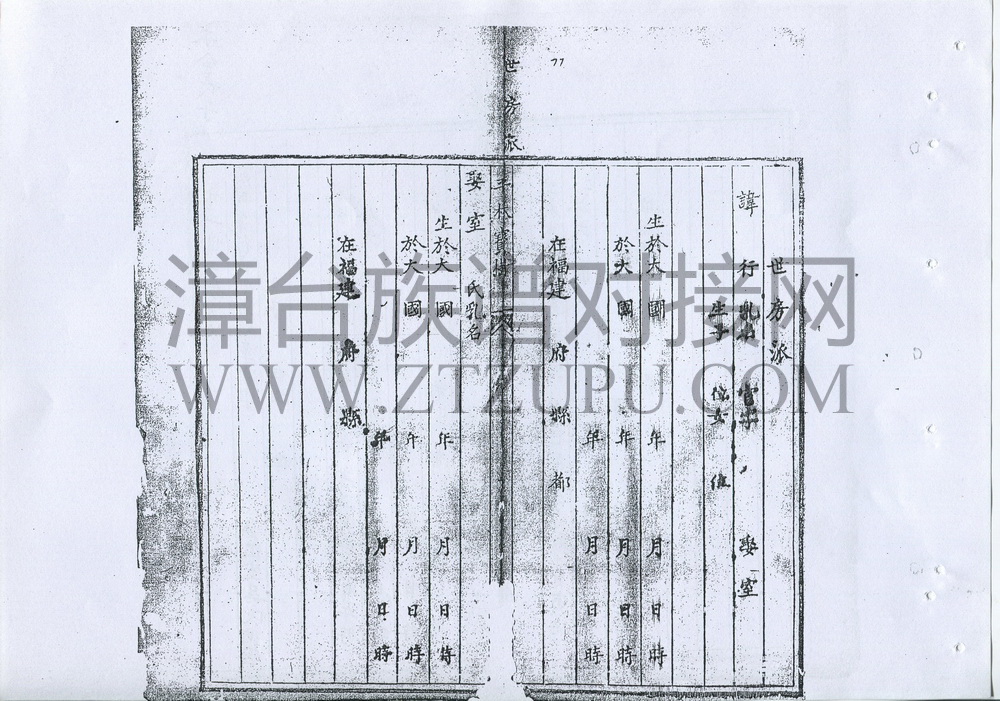 77
世房派
世 房 派
諱 行 乳名 官章 娶室
生子 位女 位
生於大 國 年 月 日 時
於大 國 年 月 日 時
年 月 日 時
在福建 府 縣 都
娶室 氏乳名
生於大 國 年 月 日 時
於大 國 年 月 日 時
年 月 日 時
在福建 府 縣
漳台族谱对接网
WWW.ZTZUPU.COM